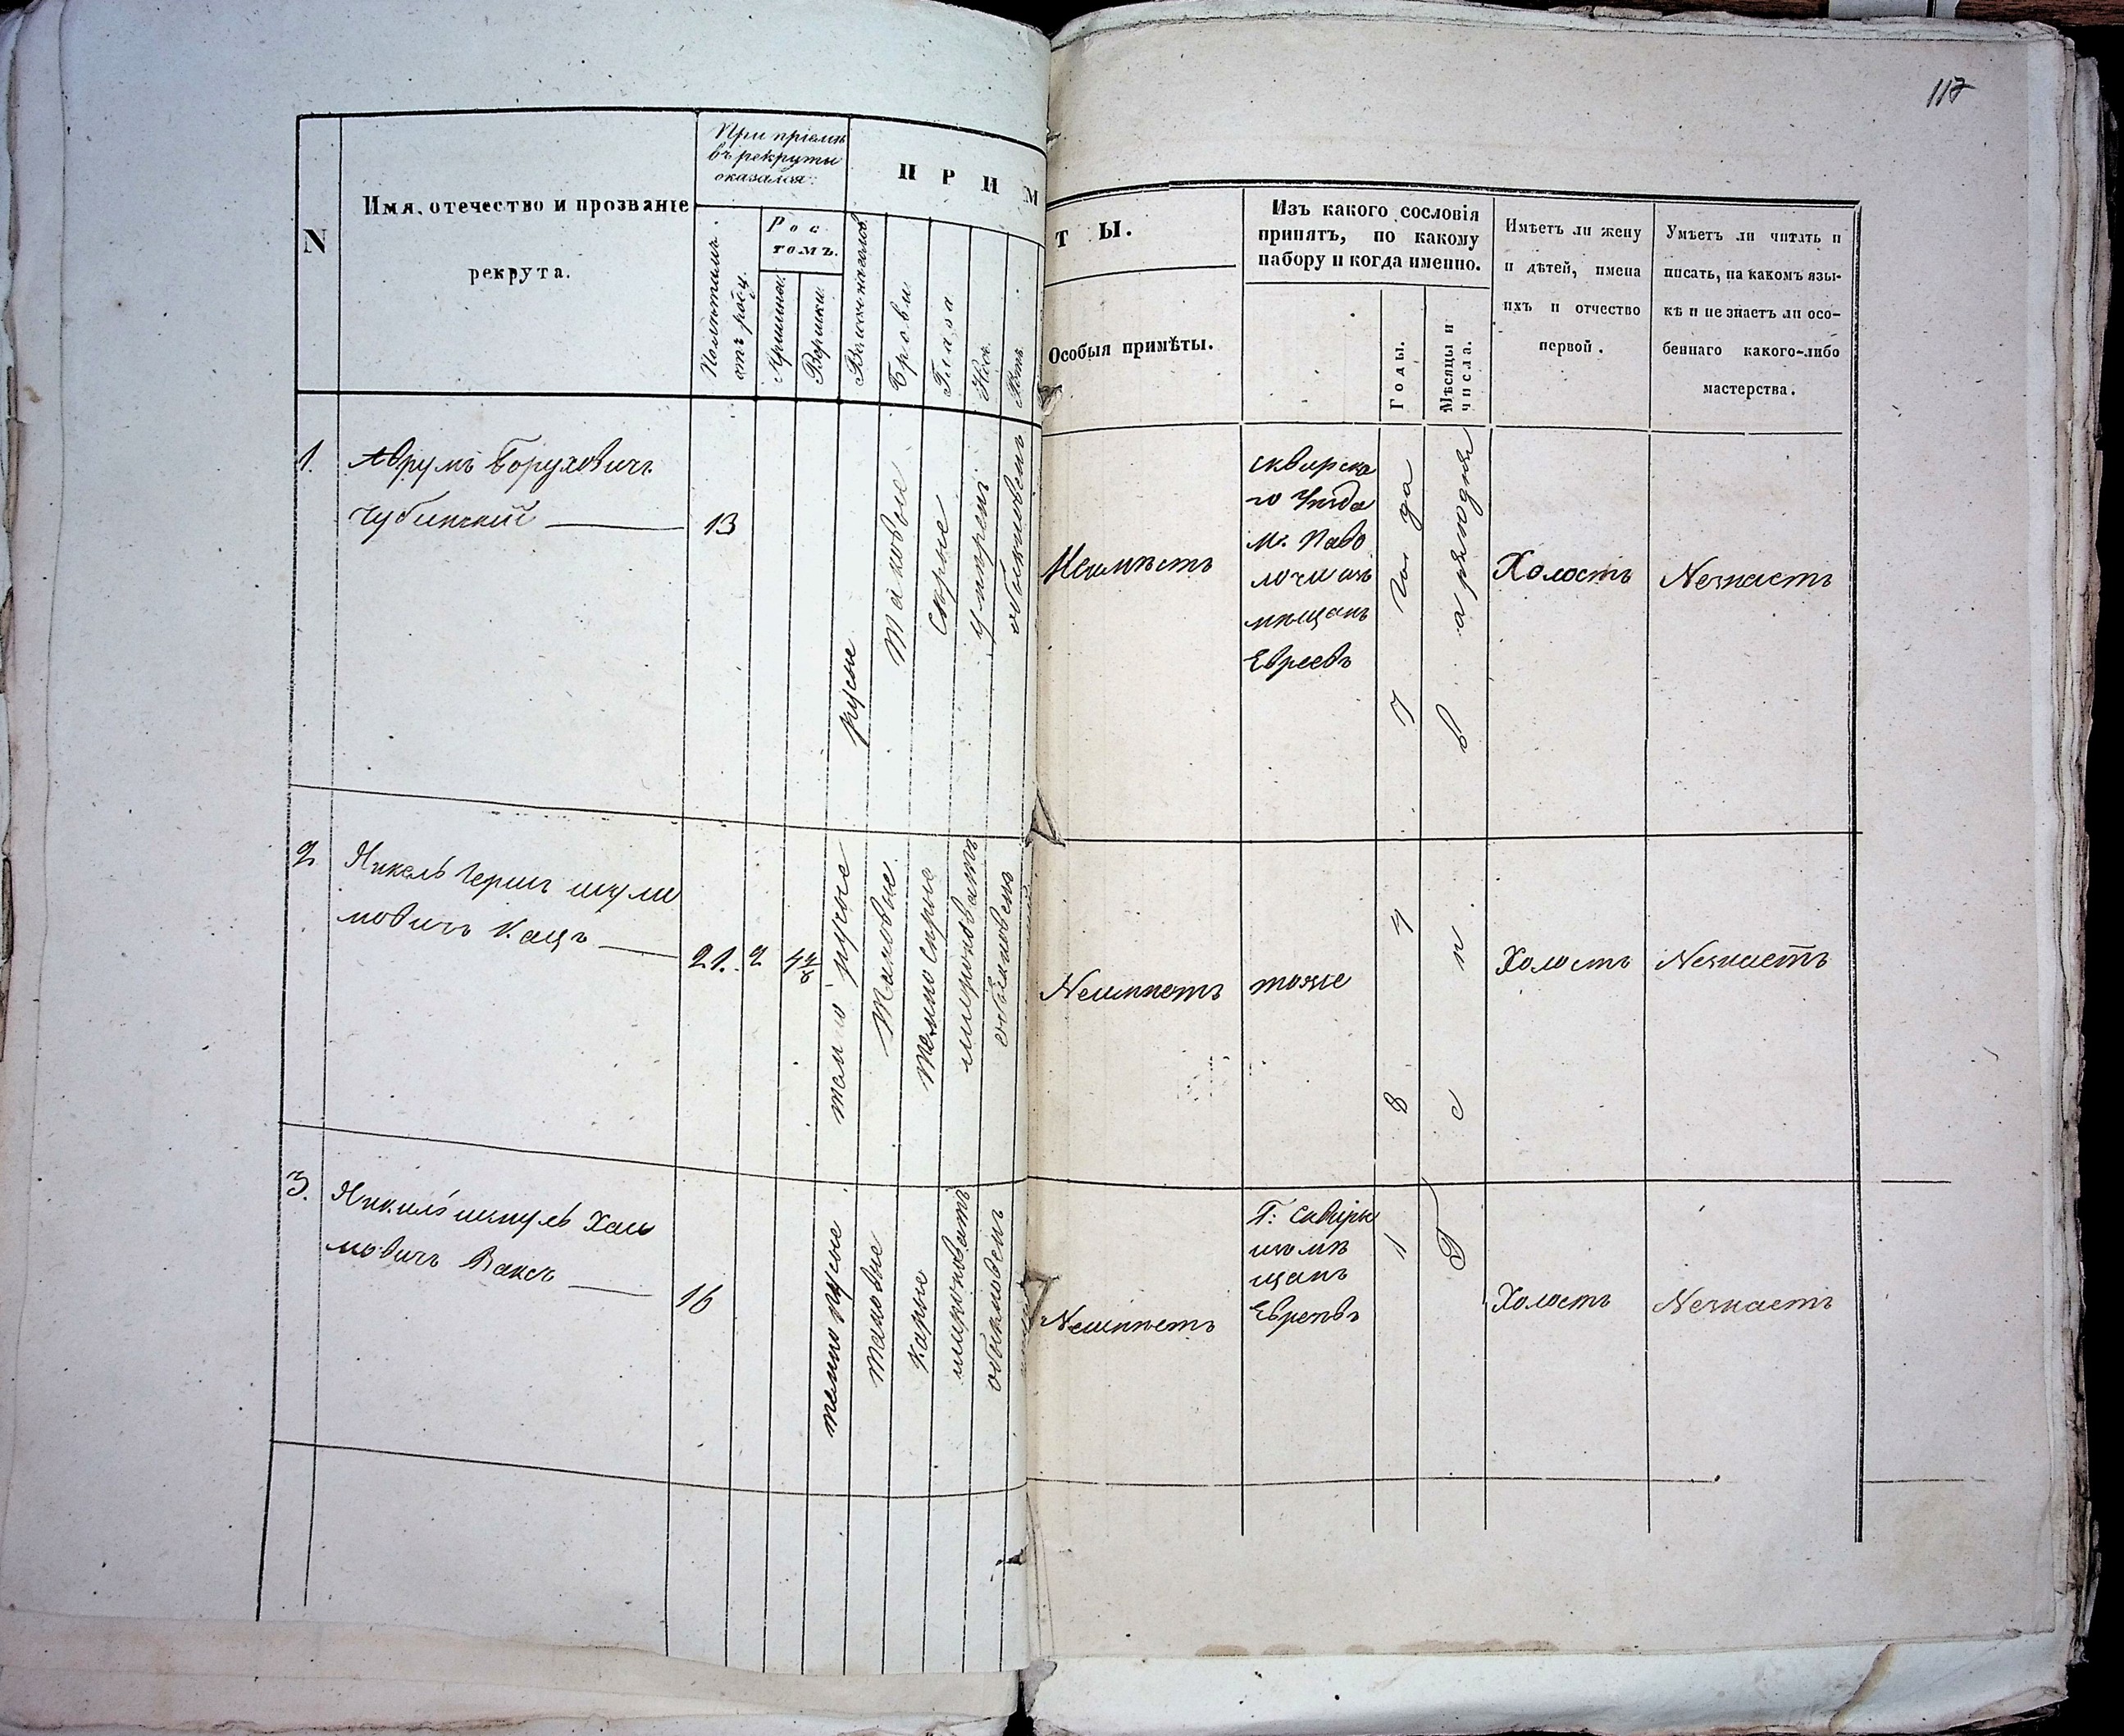 117
N
Имя, отечество и прозваніе
рекрута.
При пріемѣ
въ рекруты
оказался:
Полнотилъ
отъ роду.
Рос
томъ.
Аршины.
Вершки.
П Р И М
Брови
Глаза
Носъ.
Ротъ.
Т Ы.
Особыя примѣты.
Изъ какого сословія
принятъ, по какому
набору и когда именно.
Годы.
Мѣсяцы и
числа.
Имѣетъ ли жену
и дѣтей, имена
ихъ и отчество
первой.
Умѣетъ ли читать и
писать, на какомъ язы-
кѣ и не знаетъ ли осо-
беннаго какого-либо
мастерства.
1.
Аврумъ Борухович
Чубинский
13
русые
Таковые
Серые
умерен
обыкновен
Неимѣетъ
сквирска
го Уезда
м. Паво
лочи изъ
мещанъ
Евреевъ
1847 года
Холостъ
Незнаетъ
2.
Янкель Герш шули
мовичъ Кацъ
21. 2 4 2/8
темно русые
Таковые
Темно серые
широковатъ
обыкновен
Неимеетъ
тоже
Холостъ
Незнаетъ
3.
Янкиль шмуль Хаи
мовичъ Ваксъ
16
темно русые
Таковые
Карые
широковатъ
обыкновен
Неимеетъ
Г: Сквиры
изъ мѣ
щанъ
Евреевъ
Холостъ
Незнаетъ